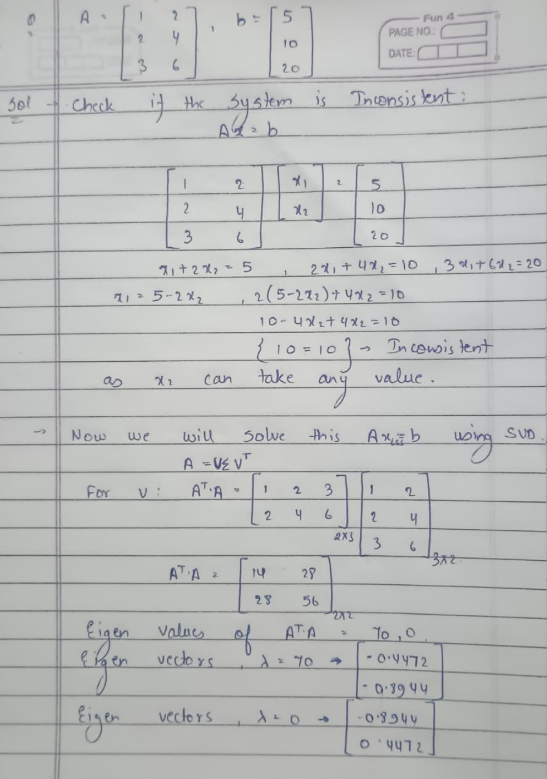 Fun 4
PAGE NO.:
DATE:
Q A = [ 1 2 ; 2 4 ; 3 6 ] , b = [ 5 ; 10 ; 20 ]
Sol → Check if the System is Inconsistent :
Ax = b
[ 1 2 ; 2 4 ; 3 6 ] [ x1 ; x2 ] = [ 5 ; 10 ; 20 ]
x1 + 2x2 = 5 , 2x1 + 4x2 = 10 , 3x1 + 6x2 = 20
x1 = 5 - 2x2 , 2(5 - 2x2) + 4x2 = 10
10 - 4x2 + 4x2 = 10
{ 10 = 10 } → Inconsistent
as x2 can take any value.
→ Now we will solve this Ax = b using SVD.
A = UΣV^T
For V : A^T.A = [ 1 2 3 ; 2 4 6 ] 2x3 [ 1 2 ; 2 4 ; 3 6 ] 3x2
A^T.A = [ 14 28 ; 28 56 ] 2x2
Eigen values of A^T.A = 70, 0
Eigen vectors, λ = 70 → [ -0.4472 ; -0.8944 ]
Eigen vectors, λ = 0 → [ -0.8944 ; 0.4472 ]